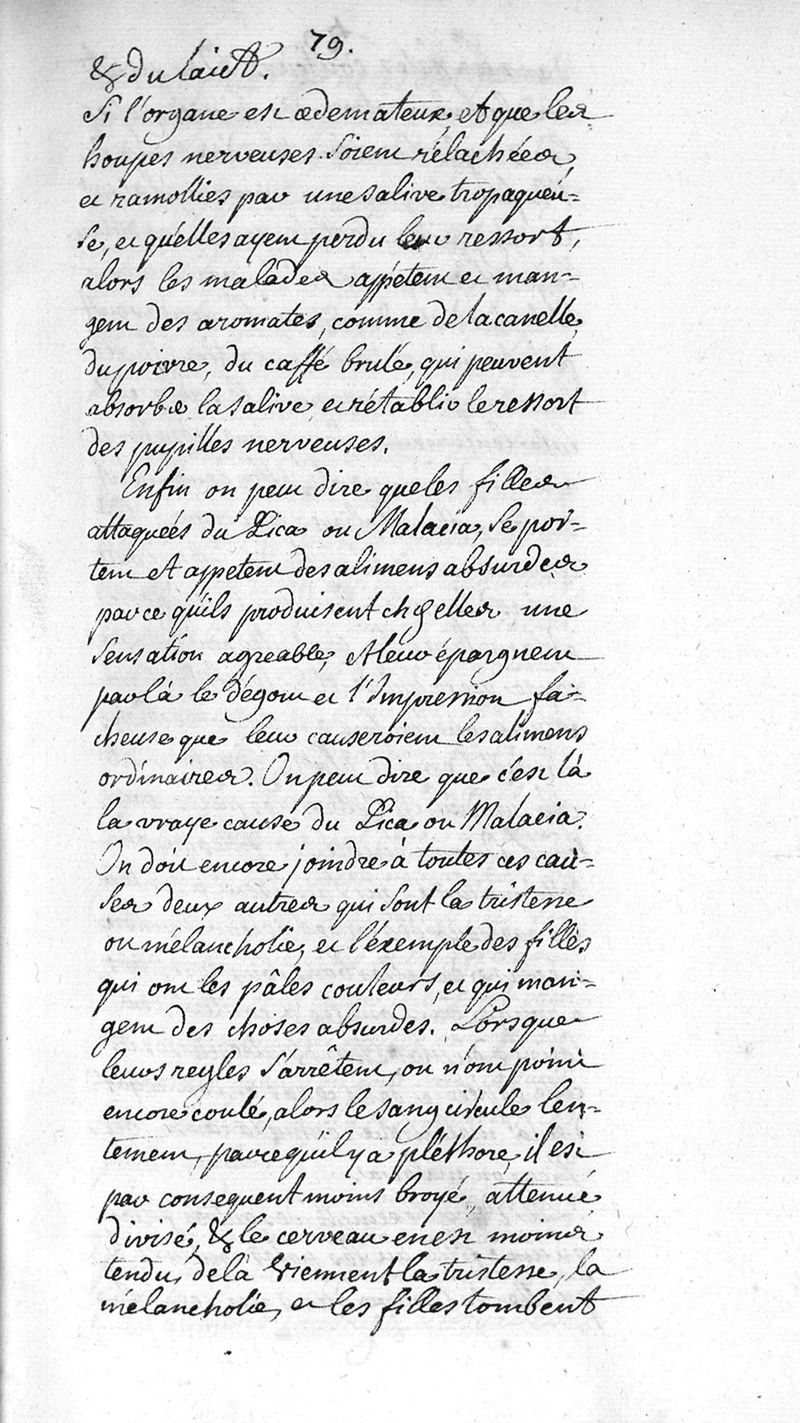 79.
& du laict.
Si l'organe est œdemateux et que les
houpes nerveuses soient rélachées,
et ramollies par une salive trop aqueu=
se, et qu'elles ayent perdu leur ressort,
alors les malades appètent et man=
gent des aromates, comme de la canelle,
du poivre, du caffé brulé, qui peuvent
absorber la salive et rétablir le ressort
des pupilles nerveuses.
Enfin on peut dire que les filles
attaqueés du Pica ou Malacia, se por=
tent et appetent des alimens absurdes
parce qu'ils produisent chez elles une
sensation agreable, et leur épargnent
par là le dégout et l'Impression fa=
cheuse que leur causeroient les alimens
ordinaires. On peut dire que c'est là
la vraye cause du Pica ou Malacia.
On doit encore joindre à toutes ces cau=
ses deux autres qui sont la tristesse
ou mélancholie, et l'éxemple des filles
qui ont les pâles couleurs, et qui man=
gent des choses absurdes. Lorsque
leurs regles s'arrêtent, ou n'ont point
encore coulé, alors le sang circule len=
tement, parce qu'il y a pléthore, il est
par consequent moins broyé, attenué
divisé, & le cerveau en est moins
tendu, de là viennent la tristesse, la
mélancholie, et les filles tombent